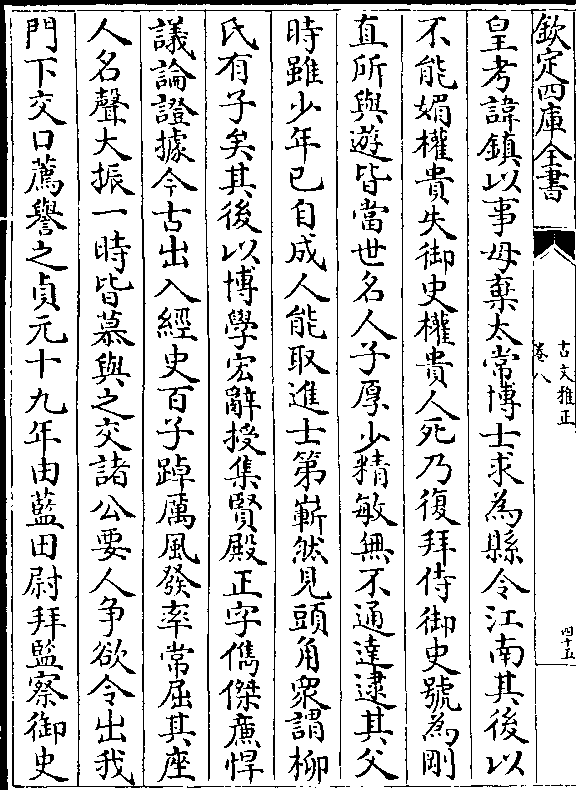 欽定四庫全書
古文雅正
卷八
四十五
皇考諱鎮以事母棄太常博士求為縣令江南其後以
不能媚權貴失御史權貴人死乃復拜侍御史號為剛
直所與遊皆當世名人子厚少精敏無不通達逮其父
時雖少年已自成人能取進士第嶄然見頭角衆謂柳
氏有子矣其後以博學宏辭授集賢殿正字儁傑亷悍
議論證據今古出入經史百子踔厲風發率常屈其座
人名聲大振一時皆慕與之交諸公要人争欲令出我
門下交口薦譽之貞元十九年由藍田尉拜監察御史